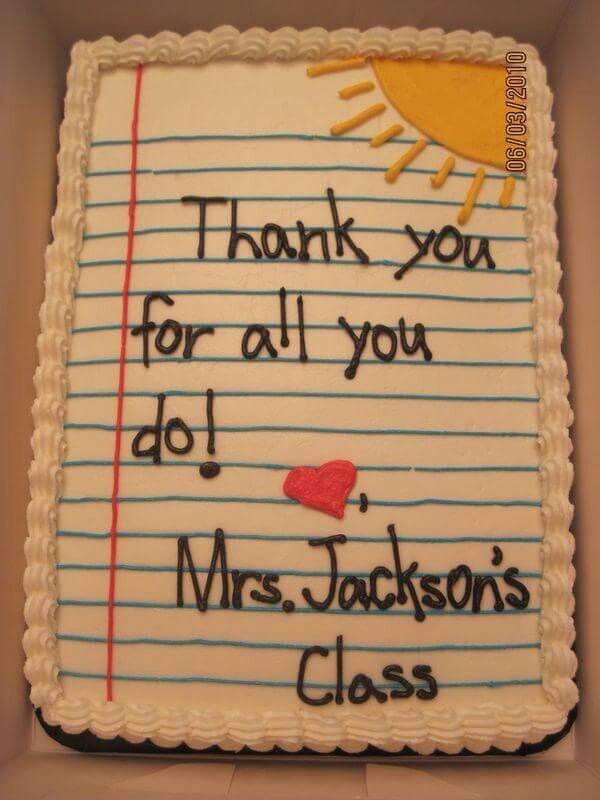 06/03/2010
Thank you
for all you
do!
,
Mrs. Jackson's
Class